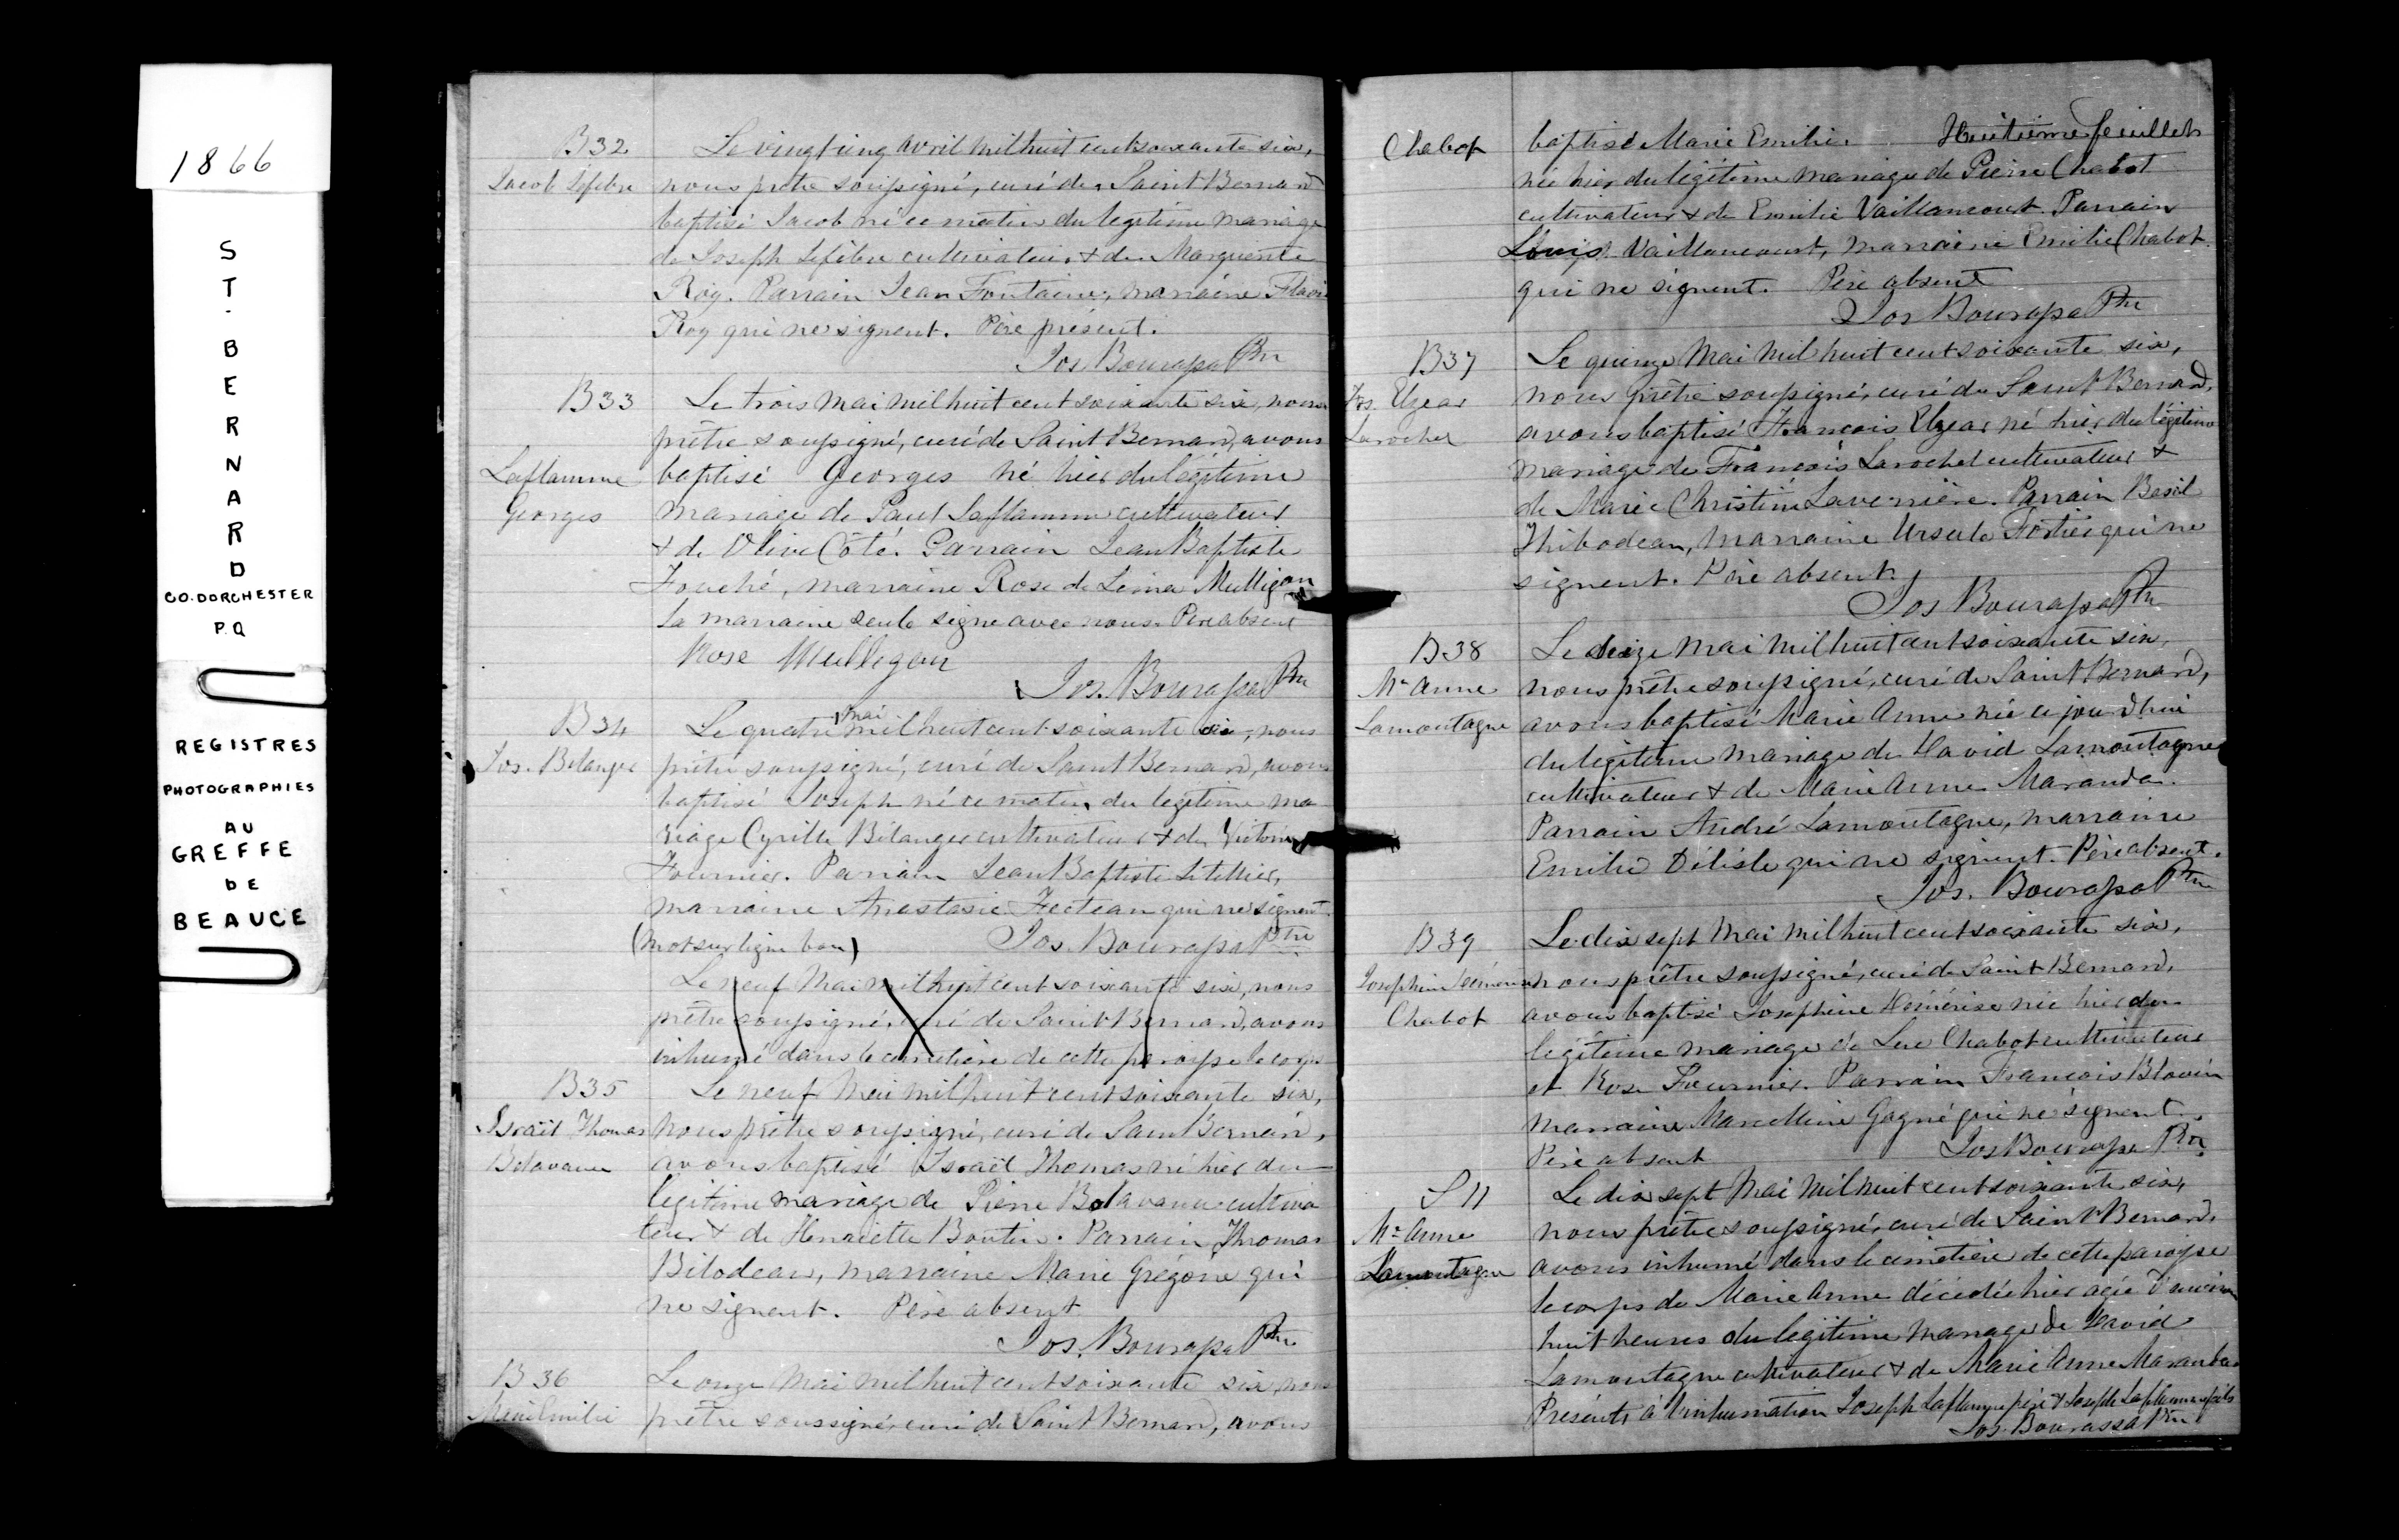 1866
ST. BERNARD
CO. DORCHESTER
P.Q
REGISTRES
PHOTOGRAPHIES
AU
GREFFE
DE
BEAUCE
B32
Jacob Lefebre
Le vingt cinq avril mil huit cent soixante six,
nous prêtre soussigné, curé de Saint Bernard
baptisé Jacob né ce matin du legitime mariage
de Joseph Lefebre cultivateur & de Marguerite
Roy. Parrain Jean Fontaine, marraine Flavie
Roy qui ne signent. Père présent.
Jos Bourassa Ptre
B33
Laflamme
Georges
Le trois Mai mil huit cent soixante six, nous
prêtre soussigné, curé de Saint Bernard, avons
baptisé Georges né hier du légitime
mariage de Paul Laflamme cultivateur
& de Olive Côté. Parrain Jean Baptiste
Fouché, marraine Rose de Lima Mulligan
La marraine seule signe avec nous. Père absent
Rose Mulligan
Jos. Bourassa Ptre
B34
Jos. Belanger
Le quatre mai mil huit cent soixante six, nous
prêtre soussigné, curé de Saint Bernard, avons
baptisé Joseph né ce matin du legitime ma
riage Cyrille Bélanger cultivateur & de Victorine
Fournier. Parrain Jean Baptiste Letellier,
marraine Anastasie Fecteau qui ne signent.
(mot sur ligne bon) Jos. Bourassa Ptre
Le neuf Mai mil huit cent soixante six, nous
prêtre soussigné, curé de Saint Bernard, avons
inhumé dans le cimetière de cette paroisse le corps
B35
Israël Thomas
Belavance
Le neuf Mai mil huit cent soixante six,
nous prêtre soussigné, curé de Saint Bernard,
avons baptisé Israël Thomas né hier du
légitime mariage de Pierre Belavance cultiva
teur & de Henriette Boutin. Parrain Thomas
Bilodeau, marraine Marie Grégoire qui
ne signent. Père absent
Jos. Bourassa Ptre
B36
Marie Emilie
Le onze Mai mil huit cent soixante six, nous
prêtre soussigné, curé de Saint Bernard, avons
Chabot
baptisé Marie Emilie. Huitième feuillet
née hier du légitime mariage de Pierre Chabot
cultivateur & de Emilie Vaillancourt. Parrain
Louis Vaillancourt, marraine Emilie Chabot
qui ne signent. Père absent
Jos Bourassa Ptre
B37
Frs. Elzear
Larochel
Le quinze Mai mil huit cent soixante six,
nous prêtre soussigné, curé de Saint Bernard,
avons baptisé François Elzear né hier du légitime
mariage de François Larochel cultivateur &
de Marie Christine Laverrière. Parrain Basil
Thibodeau, marraine Ursule Fortier qui ne
signent. Père absent.
Jos Bourassa Ptre
B38
Me Anne
Lamontagne
Le seize Mai mil huit cent soixante six,
nous prêtre soussigné, curé de Saint Bernard,
avons baptisé Marie Anne née ce jourd'hui
du legitime mariage de David Lamontagne
cultivateur & de Marie Anne Maranda.
Parrain André Lamontagne, marraine
Emilie Délisle qui ne signent. Père absent.
Jos. Bourassa Ptre
B39
Josephine Démérise
Chabot
Le dix sept Mai mil huit cent soixante six,
nous prêtre soussigné, curé de Saint Bernard,
avons baptisé Josephine Démérise née hier du
légitime mariage de Luc Chabot cultivateur
et Rose Fournier. Parrain François Blouin
marraine Marcelline Gagné qui ne signent.
Père absent Jos Bourassa Ptre
S 11
Me Anne
Lamontagne
Le dix sept Mai mil huit cent soixante six,
nous prêtre soussigné, curé de Saint Bernard,
avons inhumé dans le cimetière de cette paroisse
le corps de Marie Anne décédée hier agée d'environ
huit heures du légitime mariage de David
Lamontagne cultivateur & de Marie Anne Maranda
Présents à l'inhumation Joseph Laflamme père & Joseph Laflamme fils
Jos. Bourassa Ptre